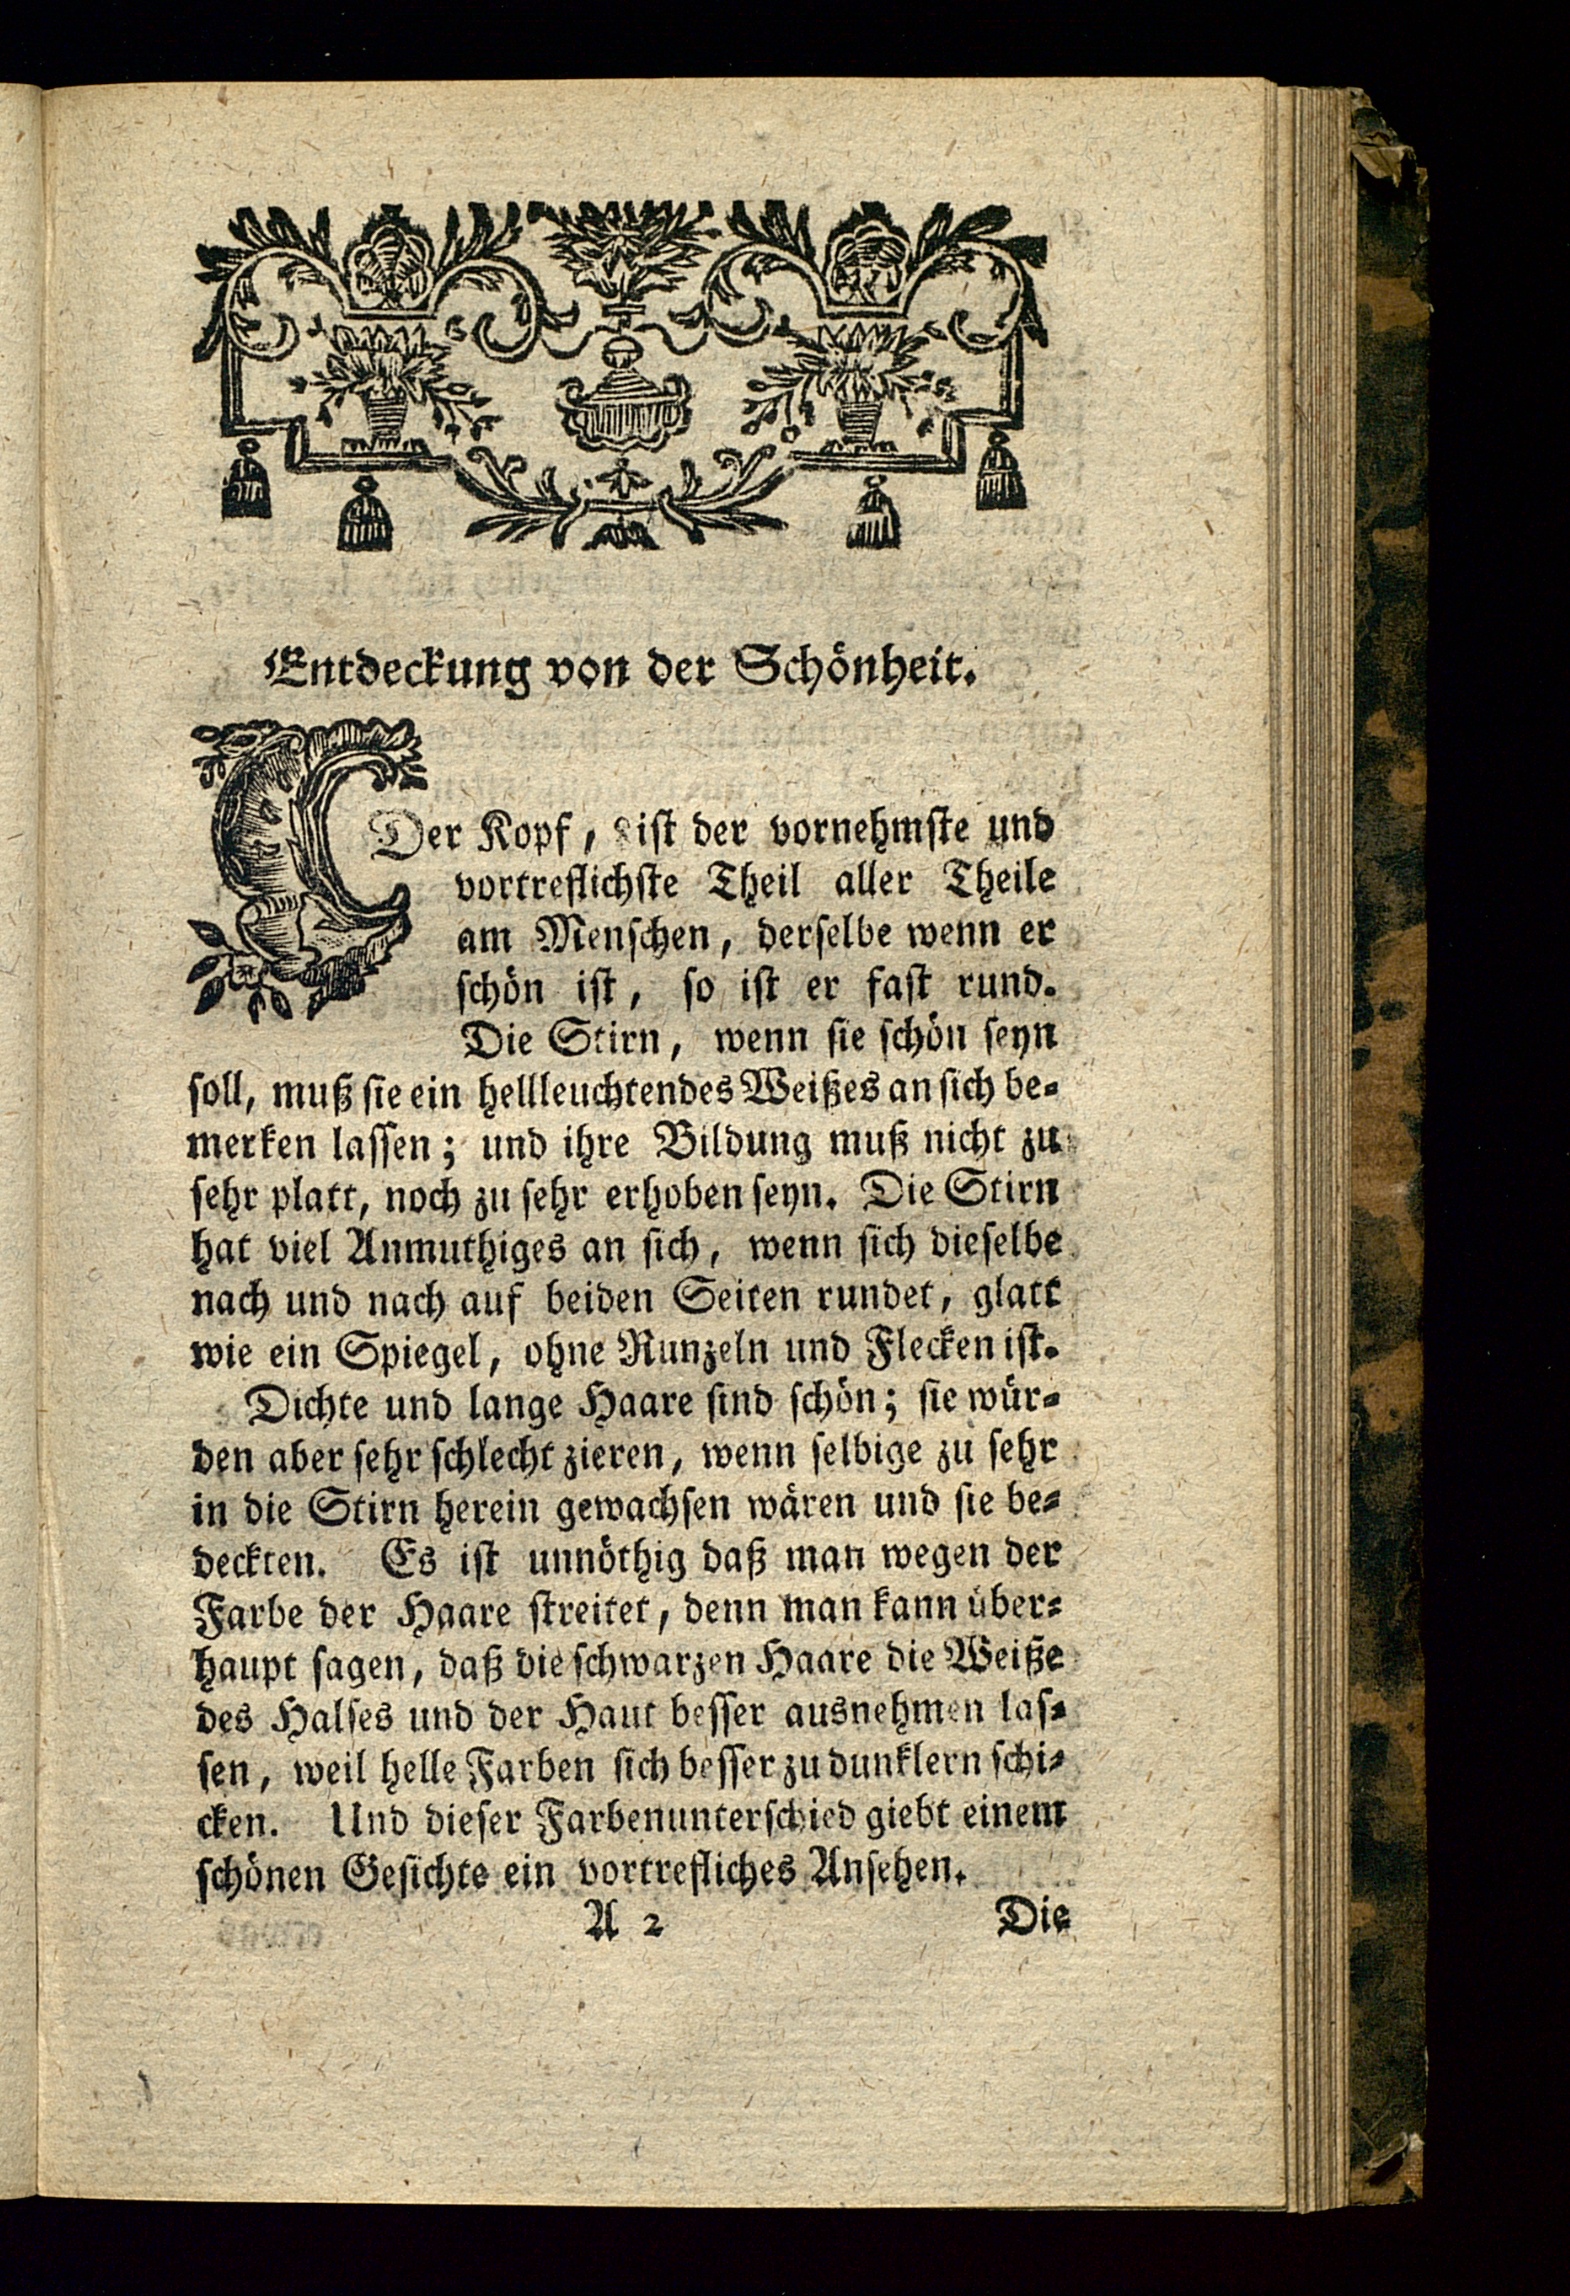 Entdeckung von der Schönheit.
Der Kopf, ist der vornehmste und
vortreflichste Theil aller Theile
am Menschen, derselbe wenn er
schön ist, so ist er fast rund.
Die Stirn, wenn sie schön seyn
soll, muß sie ein hellleuchtendes Weißes an sich be-
merken lassen; und ihre Bildung muß nicht zu
sehr platt, noch zu sehr erhoben seyn. Die Stirn
hat viel Anmuthiges an sich, wenn sich dieselbe
nach und nach auf beiden Seiten rundet, glatt
wie ein Spiegel, ohne Runzeln und Flecken ist.
Dichte und lange Haare sind schön; sie wür-
den aber sehr schlecht zieren, wenn selbige zu sehr
in die Stirn herein gewachsen wären und sie be-
deckten. Es ist unnöthig daß man wegen der
Farbe der Haare streitet, denn man kann über-
haupt sagen, daß die schwarzen Haare die Weiße
des Halses und der Haut besser ausnehmen las-
sen, weil helle Farben sich besser zu dunklern schi-
cken. Und dieser Farbenunterschied giebt einem
schönen Gesichte ein vortrefliches Ansehen.
A 2 Die